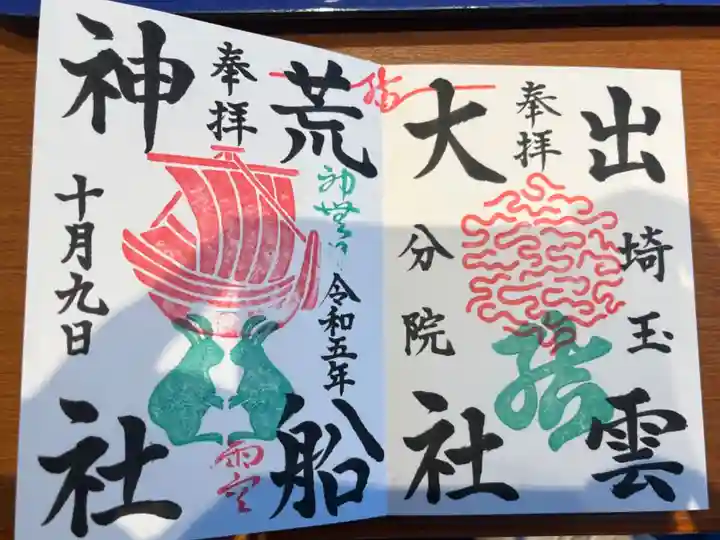 出雲
埼玉
奉拝
大社
分院
結
結
荒船
令和五年
奉拝
雨空
神社
十月九日